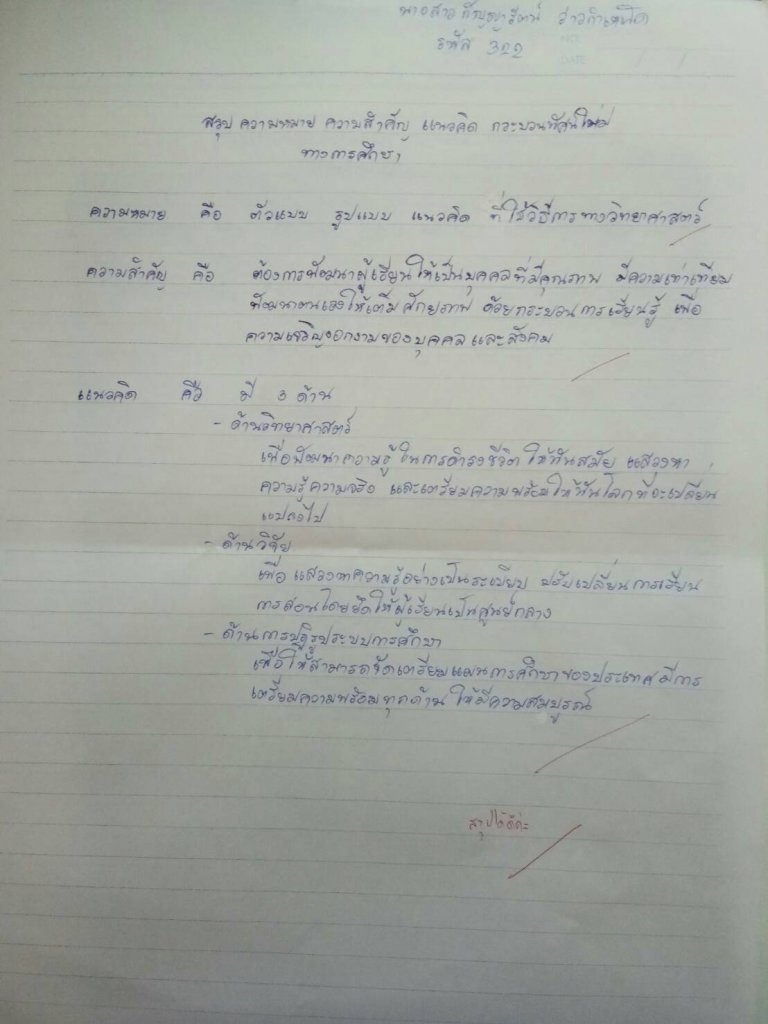 นางสาว กัญญารัตน์
รหัส 322
NO.
DATE / /
สรุป ความหมาย ความสำคัญ แนวคิด กระบวนทัศน์ใหม่
ทางการศึกษา
ความหมาย คือ ตัวแบบ รูปแบบ แนวคิด ที่ใช้วิธีการทางวิทยาศาสตร์
ความสำคัญ คือ ต้องการพัฒนาผู้เรียนให้เป็นบุคคลที่มีคุณภาพ มีความเท่าเทียม
พัฒนาตนเองให้เต็มศักยภาพ ด้วยกระบวนการเรียนรู้ เพื่อ
ความเจริญงอกงามของบุคคล และสังคม
แนวคิด คือ มี 3 ด้าน
- ด้านวิทยาศาสตร์
เพื่อพัฒนาความรู้ ในการดำรงชีวิต ให้ทันสมัย แสวงหา
ความรู้ความจริง และเตรียมความพร้อมให้ทันโลกที่จะเปลี่ยน
แปลงไป
- ด้านวิจัย
เพื่อ แสวงหาความรู้อย่างเป็นระเบียบ ปรับเปลี่ยนการเรียน
การสอนโดยยึดให้ผู้เรียนเป็นศูนย์กลาง
- ด้านการปฏิรูประบบการศึกษา
เพื่อให้สามารถจัดเตรียมแผนการศึกษาของประเทศ มีการ
เตรียมความพร้อมทุกด้าน ให้มีความสมบูรณ์
สรุปได้ดีค่ะ